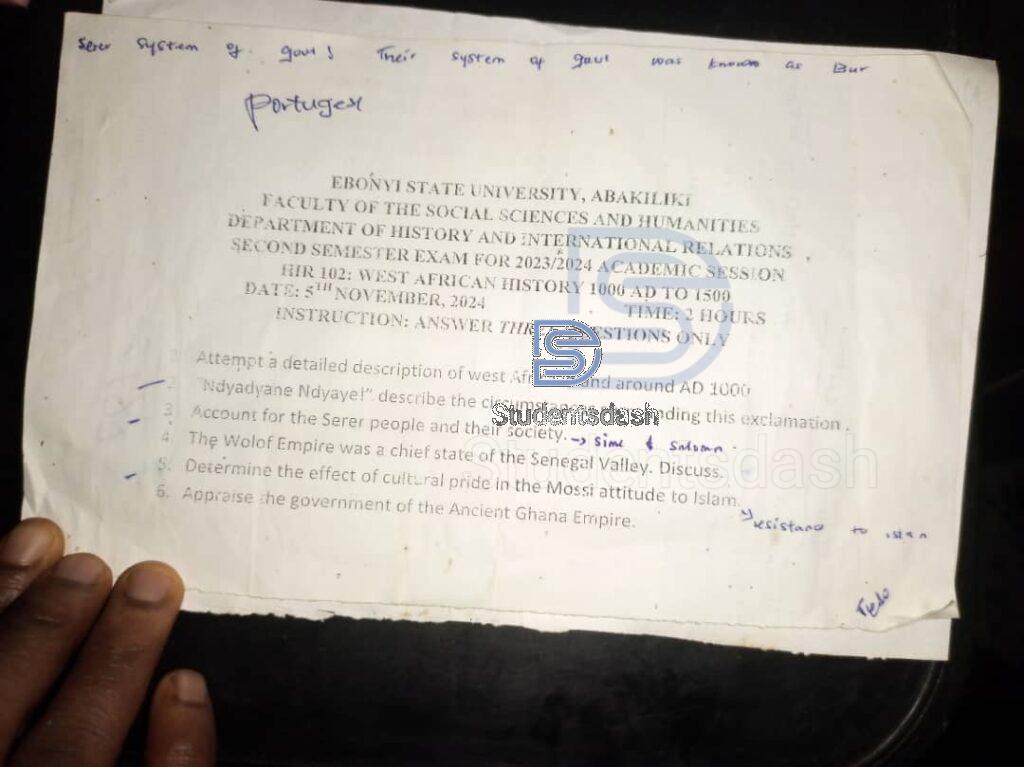 Serer system of govt! Their system of govt was known as Bur
Portugex
EBONYI STATE UNIVERSITY, ABAKILIKI
FACULTY OF THE SOCIAL SCIENCES AND HUMANITIES
DEPARTMENT OF HISTORY AND INTERNATIONAL RELATIONS
SECOND SEMESTER EXAM FOR 2023/2024 ACADEMIC SESSION
HIR 102: WEST AFRICAN HISTORY 1000 AD TO 1500
DATE: 5TH NOVEMBER, 2024 TIME: 2 HOURS
INSTRUCTION: ANSWER QUESTIONS ONLY
Attempt a detailed description of west and around AD 1000
2 "Ndyadyane Ndyaye!" describe the this exclamation.
3. Account for the Serer people and their society. → Sine &
4. The Wolof Empire was a chief state of the Senegal Valley. Discuss.
5. Determine the effect of cultural pride in the Mossi attitude to Islam.
6. Appraise the government of the Ancient Ghana Empire.
resistance to
Studentsdash
Studentsdash